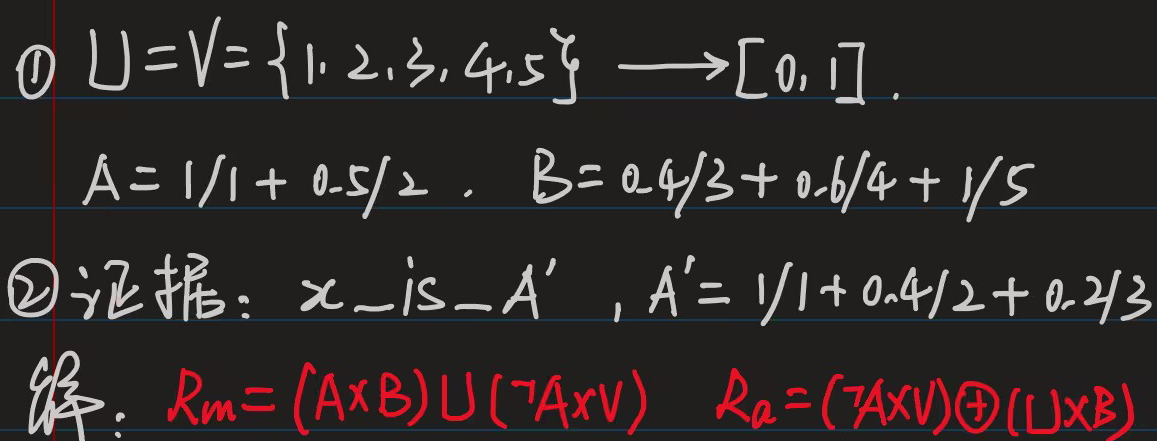 ① U=V={1,2,3,4,5}⟶[0,1].
A=1/1+0.5/2. B=0.4/3+0.6/4+1/5
②证据: x_is_A′, A′=1/1+0.4/2+0.2/3
解: Rm=(A×B)∪(¬A×V) Ra=(¬A×V)⊕(U×B)